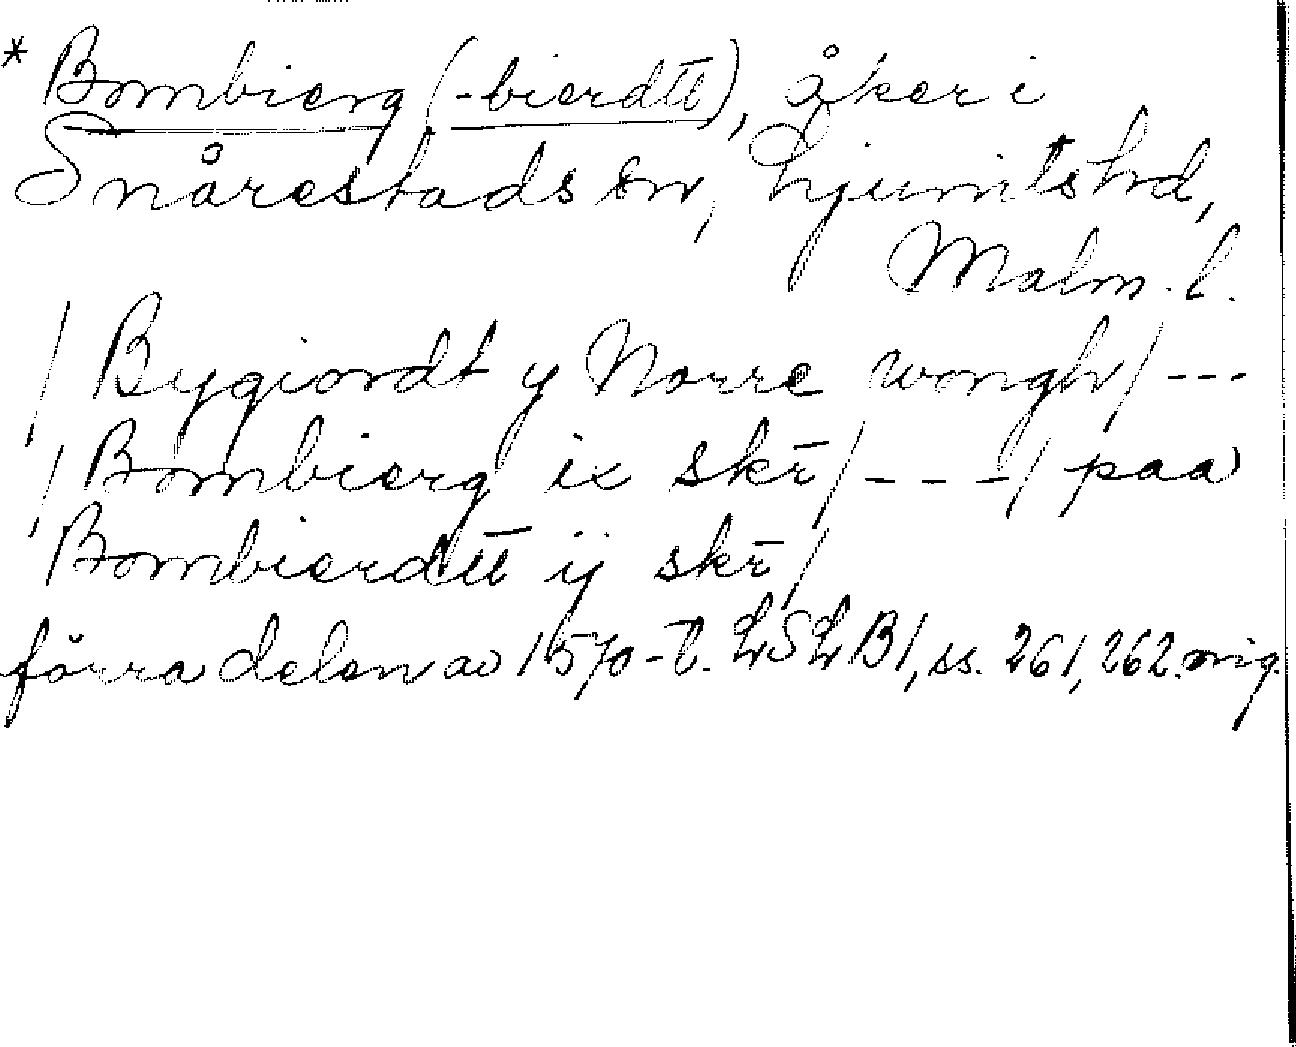 * Bombierg (-bierdtt), åker i
Snårestads sn, Ljunits hd,
Malm. l.
/ Bygiordt y Norre wongh / ---
/ Bombierg ix skr̄ / --- / paa
Bombierdtt ij skr̄ /
förra delen av 1570-t. LSLB1, ss. 261, 262. orig.